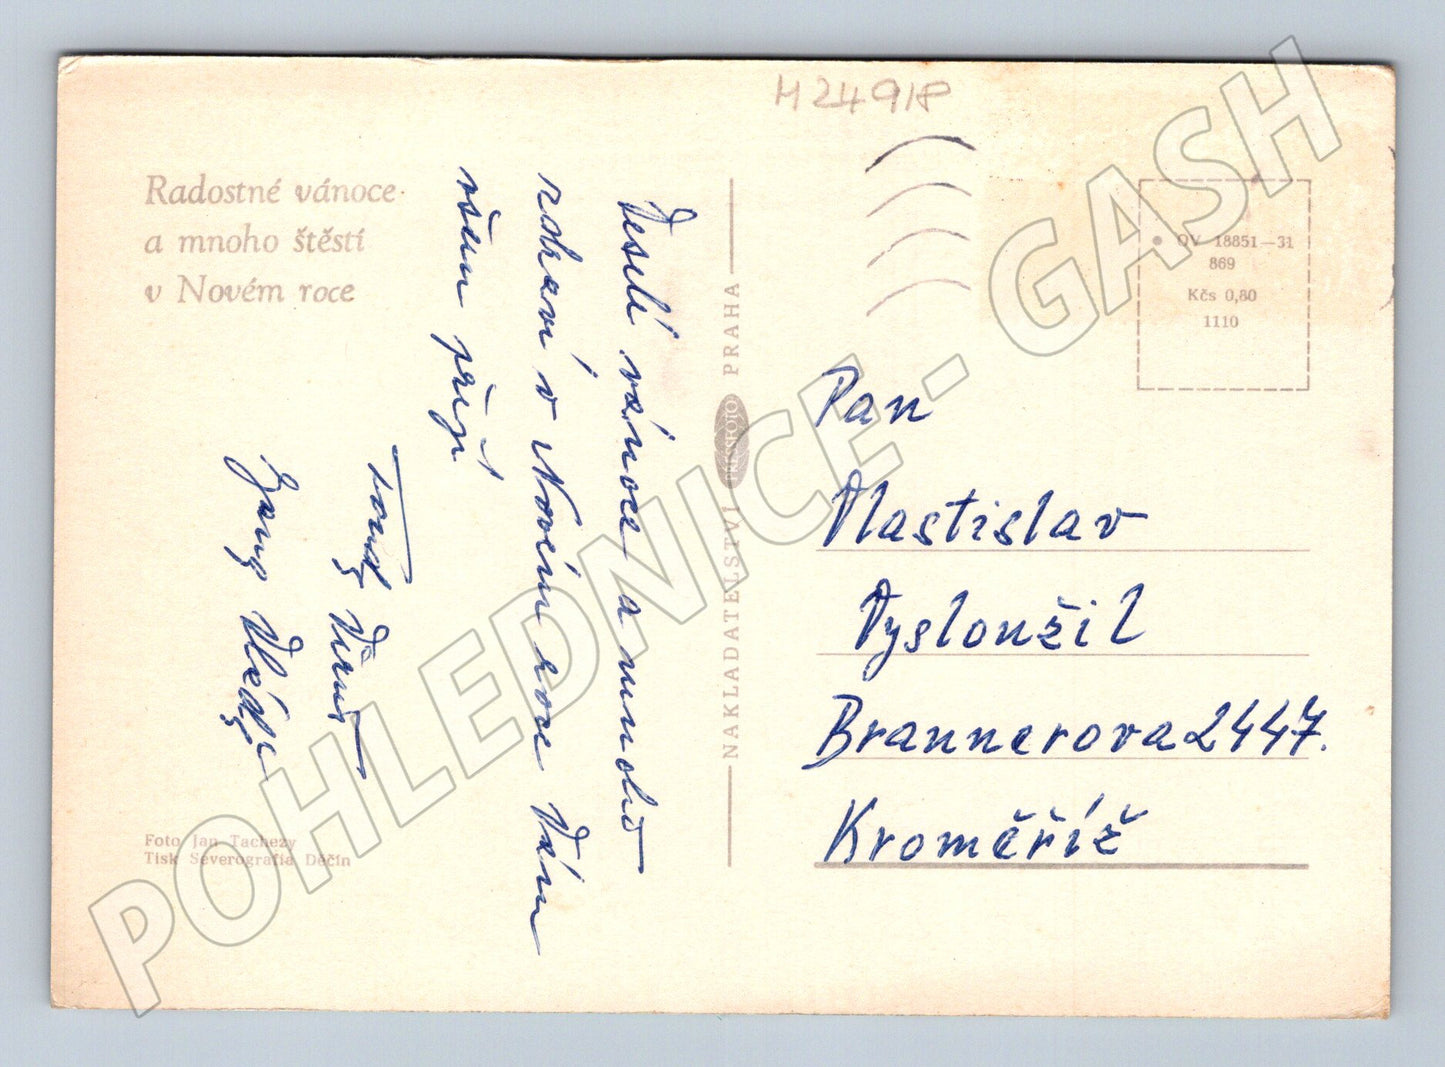 H 24918
Radostné vánoce
a mnoho štěstí
v Novém roce
Veselé vánoce a mnoho
zdraví v Novém roce Vám
všem přejí
Jana
Foto Jan Tachezy
Tisk Severografie Děčín
NAKLADATELSTVÍ PRESSFOTO PRAHA
OV 18851—31
869
Kčs 0,80
1110
Pan
Vlastislav
Vysloužil
Brannerova 2447.
Kroměříž
POHLEDNICE - GASH